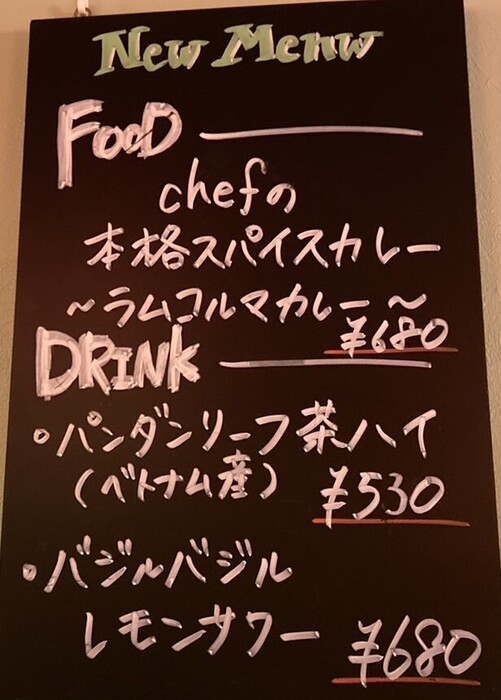 New Menu
FooD
chefの
本格スパイスカレー
~ラムコルマカレー~
¥680
DRINK
・パンダンリーフ茶ハイ
(ベトナム産) ¥530
・バジルバジル
レモンサワー ¥680